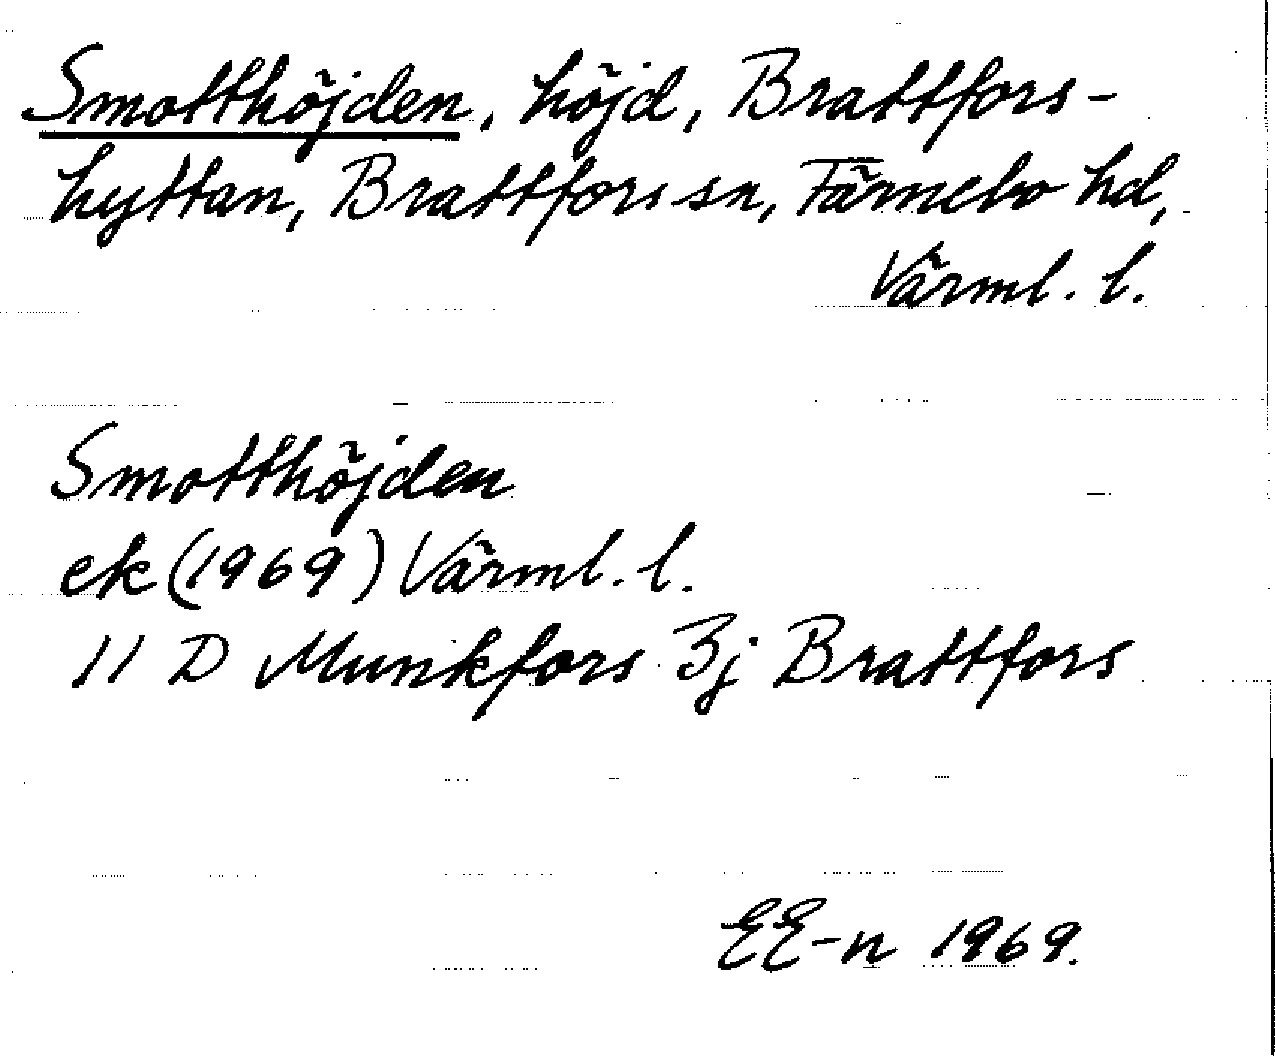 Smotthöjden, höjd, Brattfors-
hyttan, Brattfors sn, Färnebo hd,
Värml. l.
Smotthöjden
ek (1969) Värml. l.
11 D Munkfors 3j Brattfors
EE-n 1969.